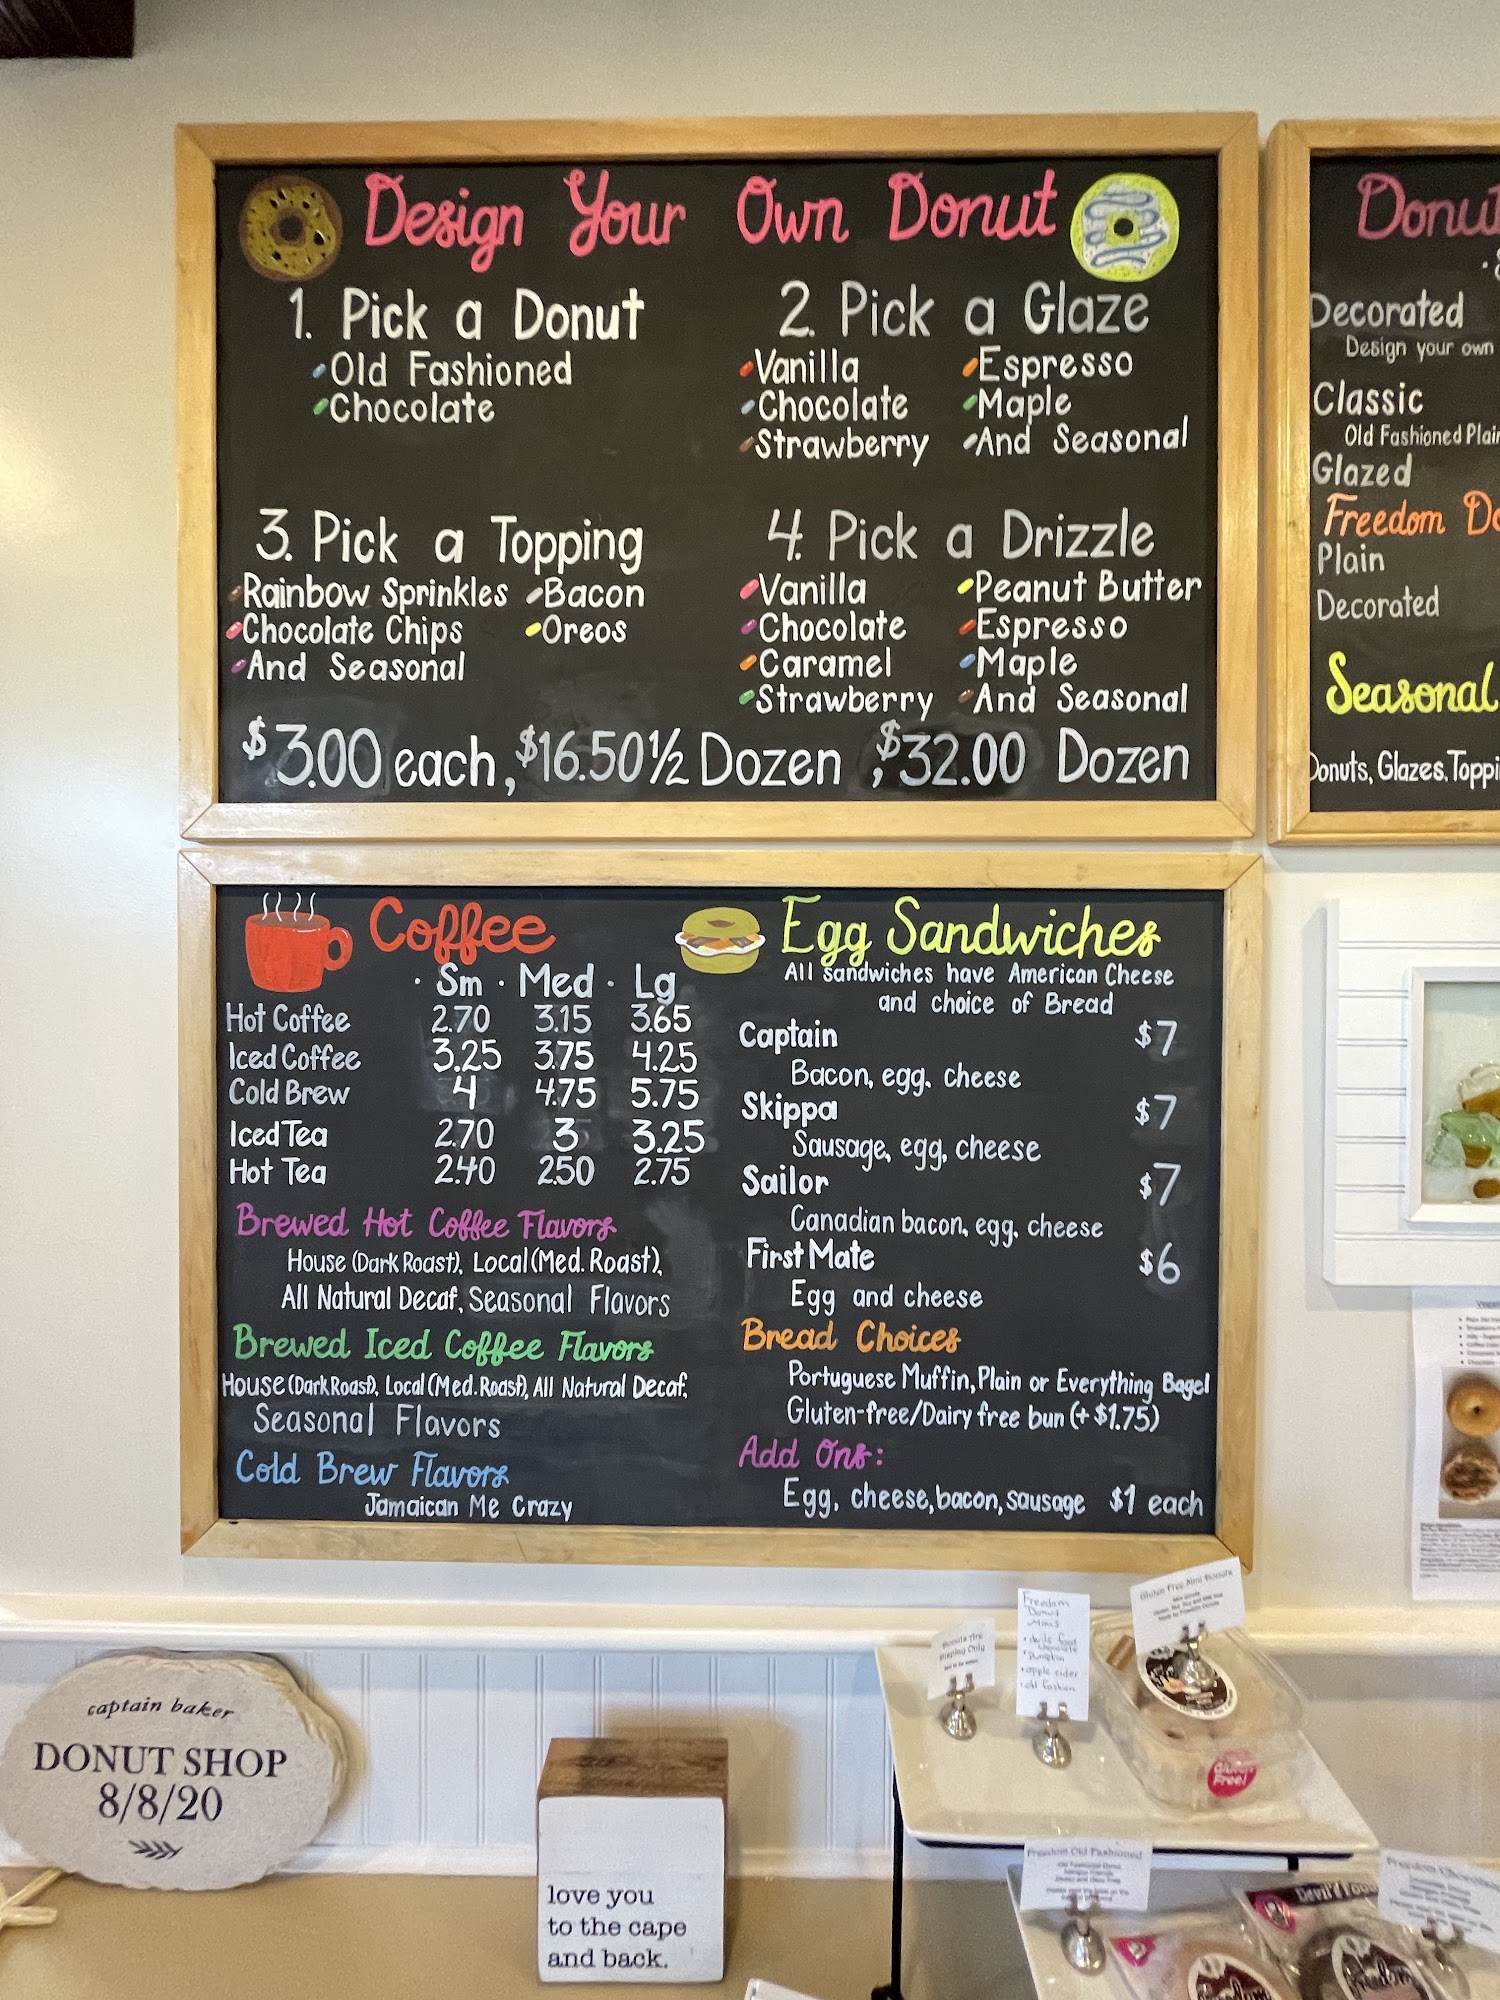 Design Your Own Donut
1. Pick a Donut
Old Fashioned
Chocolate
2. Pick a Glaze
Vanilla
Chocolate
Strawberry
Espresso
Maple
And Seasonal
3. Pick a Topping
Rainbow Sprinkles
Chocolate Chips
And Seasonal
Bacon
Oreos
4. Pick a Drizzle
Vanilla
Chocolate
Caramel
Strawberry
Peanut Butter
Espresso
Maple
And Seasonal
$3.00 each, $16.50 1/2 Dozen, $32.00 Dozen
Donut
Decorated
Design your own
Classic
Old Fashioned Plain
Glazed
Freedom Do
Plain
Decorated
Seasonal
Donuts, Glazes, Toppi
Coffee
· Sm · Med · Lg
Hot Coffee 2.70 3.15 3.65
Iced Coffee 3.25 3.75 4.25
Cold Brew 4 4.75 5.75
Iced Tea 2.70 3 3.25
Hot Tea 2.40 2.50 2.75
Brewed Hot Coffee Flavors
House (Dark Roast), Local (Med. Roast),
All Natural Decaf, Seasonal Flavors
Brewed Iced Coffee Flavors
House (Dark Roast), Local (Med. Roast), All Natural Decaf,
Seasonal Flavors
Cold Brew Flavors
Jamaican Me Crazy
Egg Sandwiches
All sandwiches have American Cheese
and choice of Bread
Captain $7
Bacon, egg, cheese
Skippa $7
Sausage, egg, cheese
Sailor $7
Canadian bacon, egg, cheese
First Mate $6
Egg and cheese
Bread Choices
Portuguese Muffin, Plain or Everything Bagel
Gluten-free/Dairy free bun (+ $1.75)
Add Ons:
Egg, cheese, bacon, sausage $1 each
captain baker
DONUT SHOP
8/8/20
love you
to the cape
and back.
Donuts Are
Display Only
Freedom
Donut
Minis
• devils food
chocolate
• pumpkin
• apple cider
• old fashion
Gluten Free Mini Donuts
Gluten
Free!
Freedom Old Fashioned